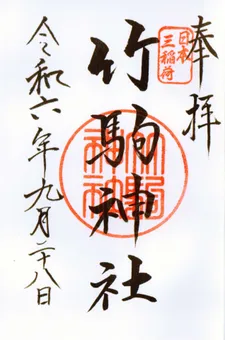 奉拝
日本
三稲荷
竹駒神社
令和六年九月二十八日